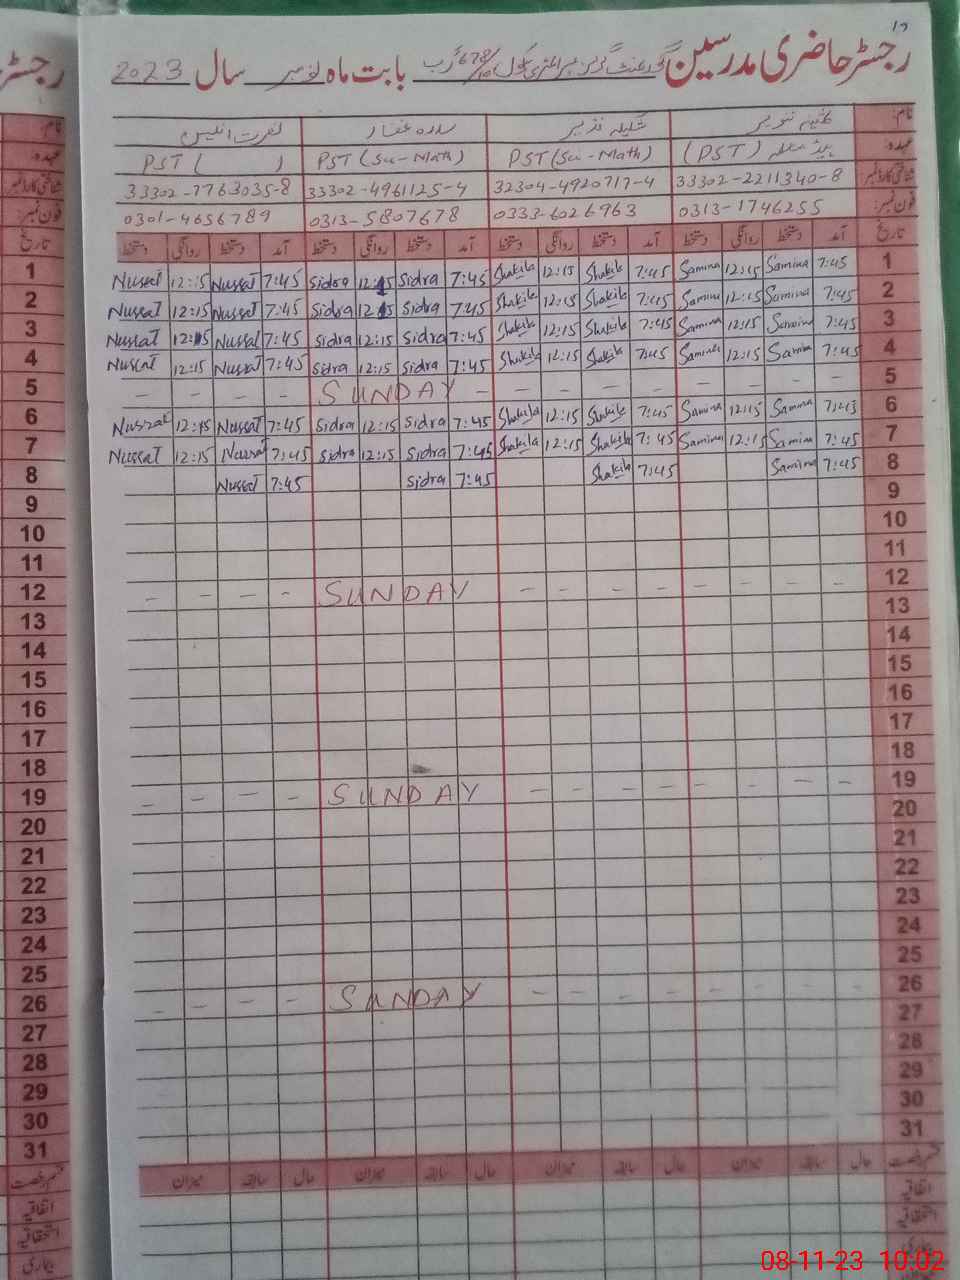 رجسٹر حاضری مدرسین گورنمنٹ گرلز پرائمری سکول 678/10 گ ب بابت ماہ نومبر سال 2023
نام: ثمینہ تنویر شکیلہ نذیر سدرہ غفار نصرت انیس
عہدہ: ہیڈ معلمہ (PST) PST (Sci-Math) PST (Sci-Math) PST ( )
شناختی کارڈ نمبر 33302-2211340-8 32304-4920717-4 33302-4961125-4 33302-7763035-8
فون نمبر: 0313-1746255 0333-6026963 0313-5807678 0301-4656789
تاریخ آمد دستخط روانگی دستخط آمد دستخط روانگی دستخط آمد دستخط روانگی دستخط آمد دستخط روانگی دستخط تاریخ
1 Nussat 12:15 Nussat 7:45 Sidra 12:15 Sidra 7:45 Shakila 12:15 Shakila 7:45 Samina 12:15 Samina 7:45 1
2 Nussat 12:15 Nussat 7:45 Sidra 12:15 Sidra 7:45 Shakila 12:15 Shakila 7:45 Samina 12:15 Samina 7:45 2
3 Nussat 12:15 Nussat 7:45 Sidra 12:15 Sidra 7:45 Shakila 12:15 Shakila 7:45 Samina 12:15 Samina 7:45 3
4 Nussat 12:15 Nussat 7:45 Sidra 12:15 Sidra 7:45 Shakila 12:15 Shakila 7:45 Samina 12:15 Samina 7:45 4
5 - - - - SUNDAY - - - - - - - - - 5
6 Nussat 12:15 Nussat 7:45 Sidra 12:15 Sidra 7:45 Shakila 12:15 Shakila 7:45 Samina 12:15 Samina 7:45 6
7 Nussat 12:15 Nussat 7:45 Sidra 12:15 Sidra 7:45 Shakila 12:15 Shakila 7:45 Samina 12:15 Samina 7:45 7
8 Nussat 7:45 Sidra 7:45 Shakila 7:45 Samina 7:45 8
9 9
10 10
11 11
12 - - - - SUNDAY - - - - - - - - 12
13 13
14 14
15 15
16 16
17 17
18 18
19 - - - - SUNDAY - - - - - - - - 19
20 20
21 21
22 22
23 23
24 24
25 25
26 - - - - SUNDAY - - - - - - - - 26
27 27
28 28
29 29
30 30
31 31
قسم رخصت حال سابقہ میزان حال سابقہ میزان حال سابقہ میزان حال سابقہ میزان قسم رخصت
اتفاقیہ اتفاقیہ
استحقاقیہ استحقاقیہ
بیماری بیماری
08-11-23 10:02